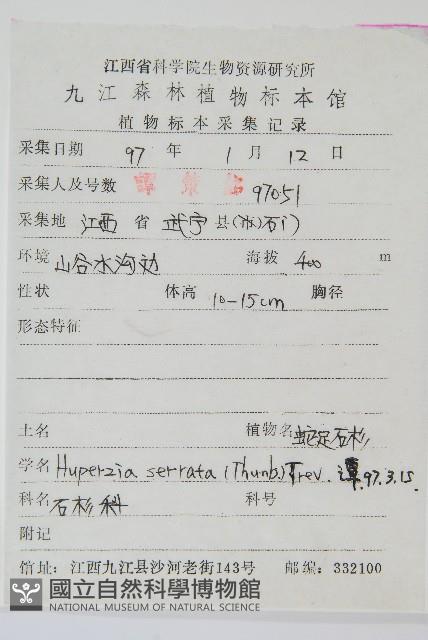 江西省科学院生物资源研究所
九江森林植物标本馆
植物标本采集记录
采集日期 97 年 1 月 12 日
采集人及号数 譚策铭 97051
采集地 江西 省 武宁 县(市)石门
环境 山谷水沟边 海拨 400 m
性状 体高 10-15cm 胸径
形态特征
土名 植物名 蛇足石杉
学名 Huperzia serrata (Thunb.) Trev. 譚.97.3.15.
科名 石杉科 科号
附记
馆址:江西九江县沙河老街143号 邮编:332100
國立自然科學博物館
NATIONAL MUSEUM OF NATURAL SCIENCE